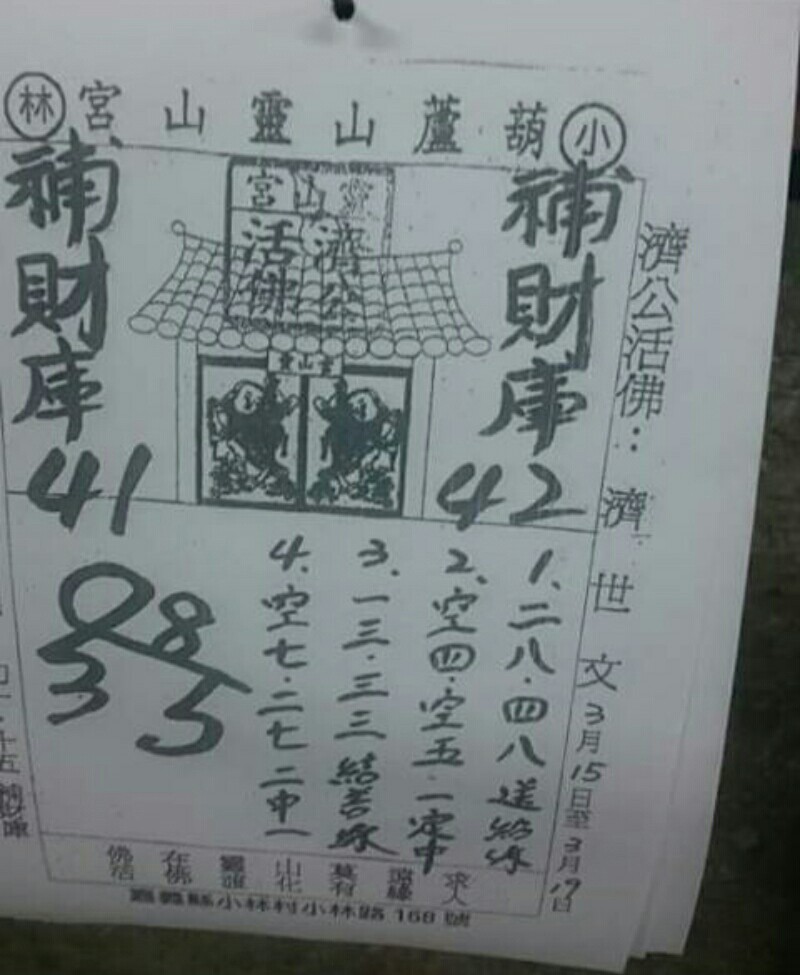 小葫蘆山靈山宮林
濟公活佛：濟世文3月15日至3月19日
補財庫
42
補財庫
41
靈山宮
濟公
活佛
靈山宮
1、二八．四八送有緣
2、空四．空五．一定中
3、一三．三三結善緣
4、空七．二七二中一
08
35
求人
遠緣
莫有
山化
靈誰
在佛
佛活
嘉義縣小林村小林路168號
十五
補財庫